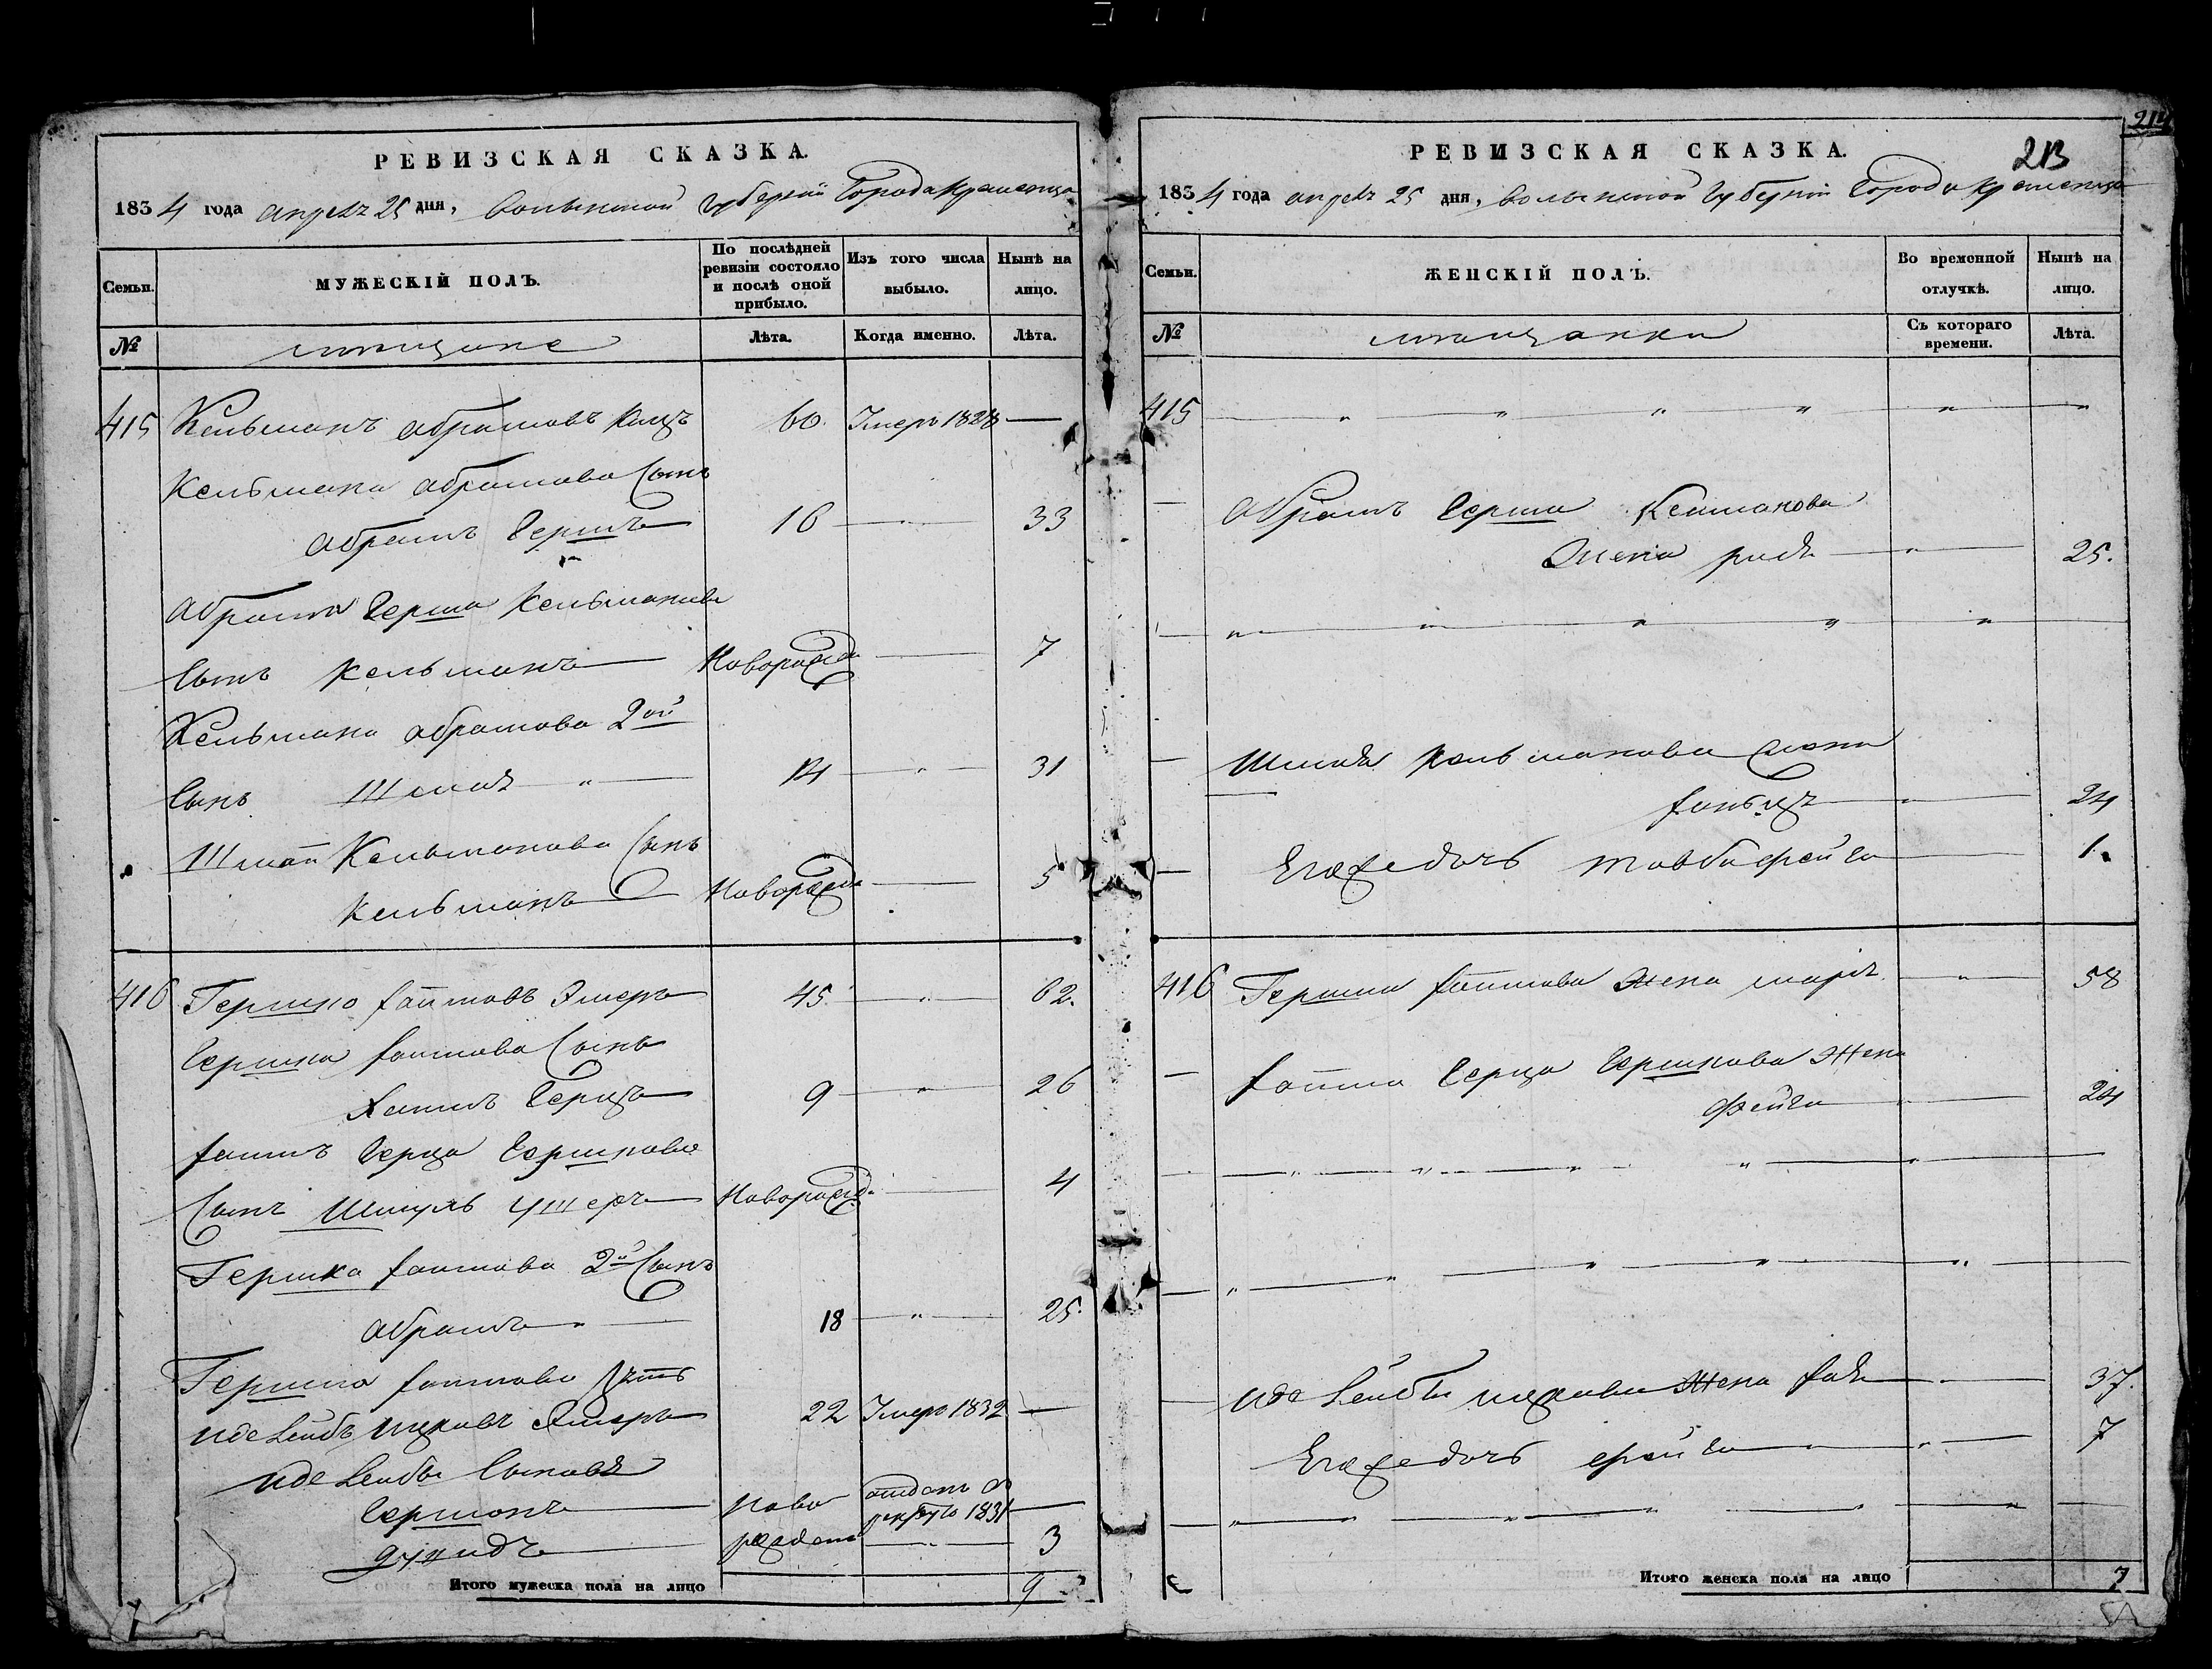 РЕВИЗСКАЯ СКАЗКА.
1834 года апреля 25 дня, Волынской Губернии Города Кременца
Семьи.
МУЖЕСКІЙ ПОЛЪ.
По послѣдней ревизіи состояло и послѣ оной прибыло.
Изъ того числа выбыло.
Нынѣ на лицо.
№
мещане
Лѣта.
Когда именно.
Лѣта.
415 Кельманъ Абрамовъ Кацъ 60. Умеръ 1828 —
Кельмана Абрамова Сынъ
Абрамъ Гершъ 16 — " — 33
Абрама Герша Кельманова
Сынъ Кельманъ Новорожд. — 7
Кельмана Абрамова 2ой
Сынъ Шмая " — 14 — " — 31
Шмаи Кельманова Сынъ
Кельманъ Новорожд. — 5
416 Гершко Хаимовъ 45. — " — 62.
Гершка Хаимова Сынъ
Хаимъ Герцъ 9 — " — 26
Хаимъ Герца Гершкова
Сынъ Шмуль Ушеръ Новорожд. — 4
Гершка Хаимова 2й Сынъ
Абрамъ " — 18 — " — 25.
Гершка Хаимова Зять
Иде Лейбъ 22 Умеръ 1832 —
Иде Лейбы Сыновья
Гершонъ ново отданъ в рекруты 1831 —
рождены — " — 3
Итого мужеска пола на лицо 9
214
213
РЕВИЗСКАЯ СКАЗКА.
1834 года апреля 25 дня, Волынской Губернии Города Кременца
Семьи.
ЖЕНСКІЙ ПОЛЪ.
Во временной отлучкѣ.
Нынѣ на лицо.
№
мещанки
Съ котораго времени.
Лѣта.
415 — " — " — " — " — " — "
— Абрамъ Герша Кельманова
Жена — " — 25.
— " — " — " — " — "
— Шмаи Кельманова Жена
— " — 24
— Его же дочь Товба Фейга — 1.
416 Гершка Хаимова Жена — " — 58
— Хаима Герца Гершкова Жена
Фейга — 24
— " — " — " — " — "
— " — " — " — " — "
— Иде Лейбы Жена — " — 37.
Его же дочь Фейга — " — 7
— " — " — " — " — " — "
Итого женска пола на лицо 7